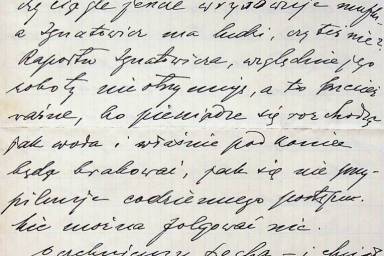 czy ciągle jeszcze
a Ignatowicz ma ludzi, czy też nie?
Raportu Ignatowicza, względnie jego
roboty nie otrzymuję, a to przecież
ważne, bo pieniądze się rozchodzą
jak woda i właśnie pod koniec
będą brakować, jak się nie przy-
pilnuje codziennego postępu.
Nie można folgować nic.